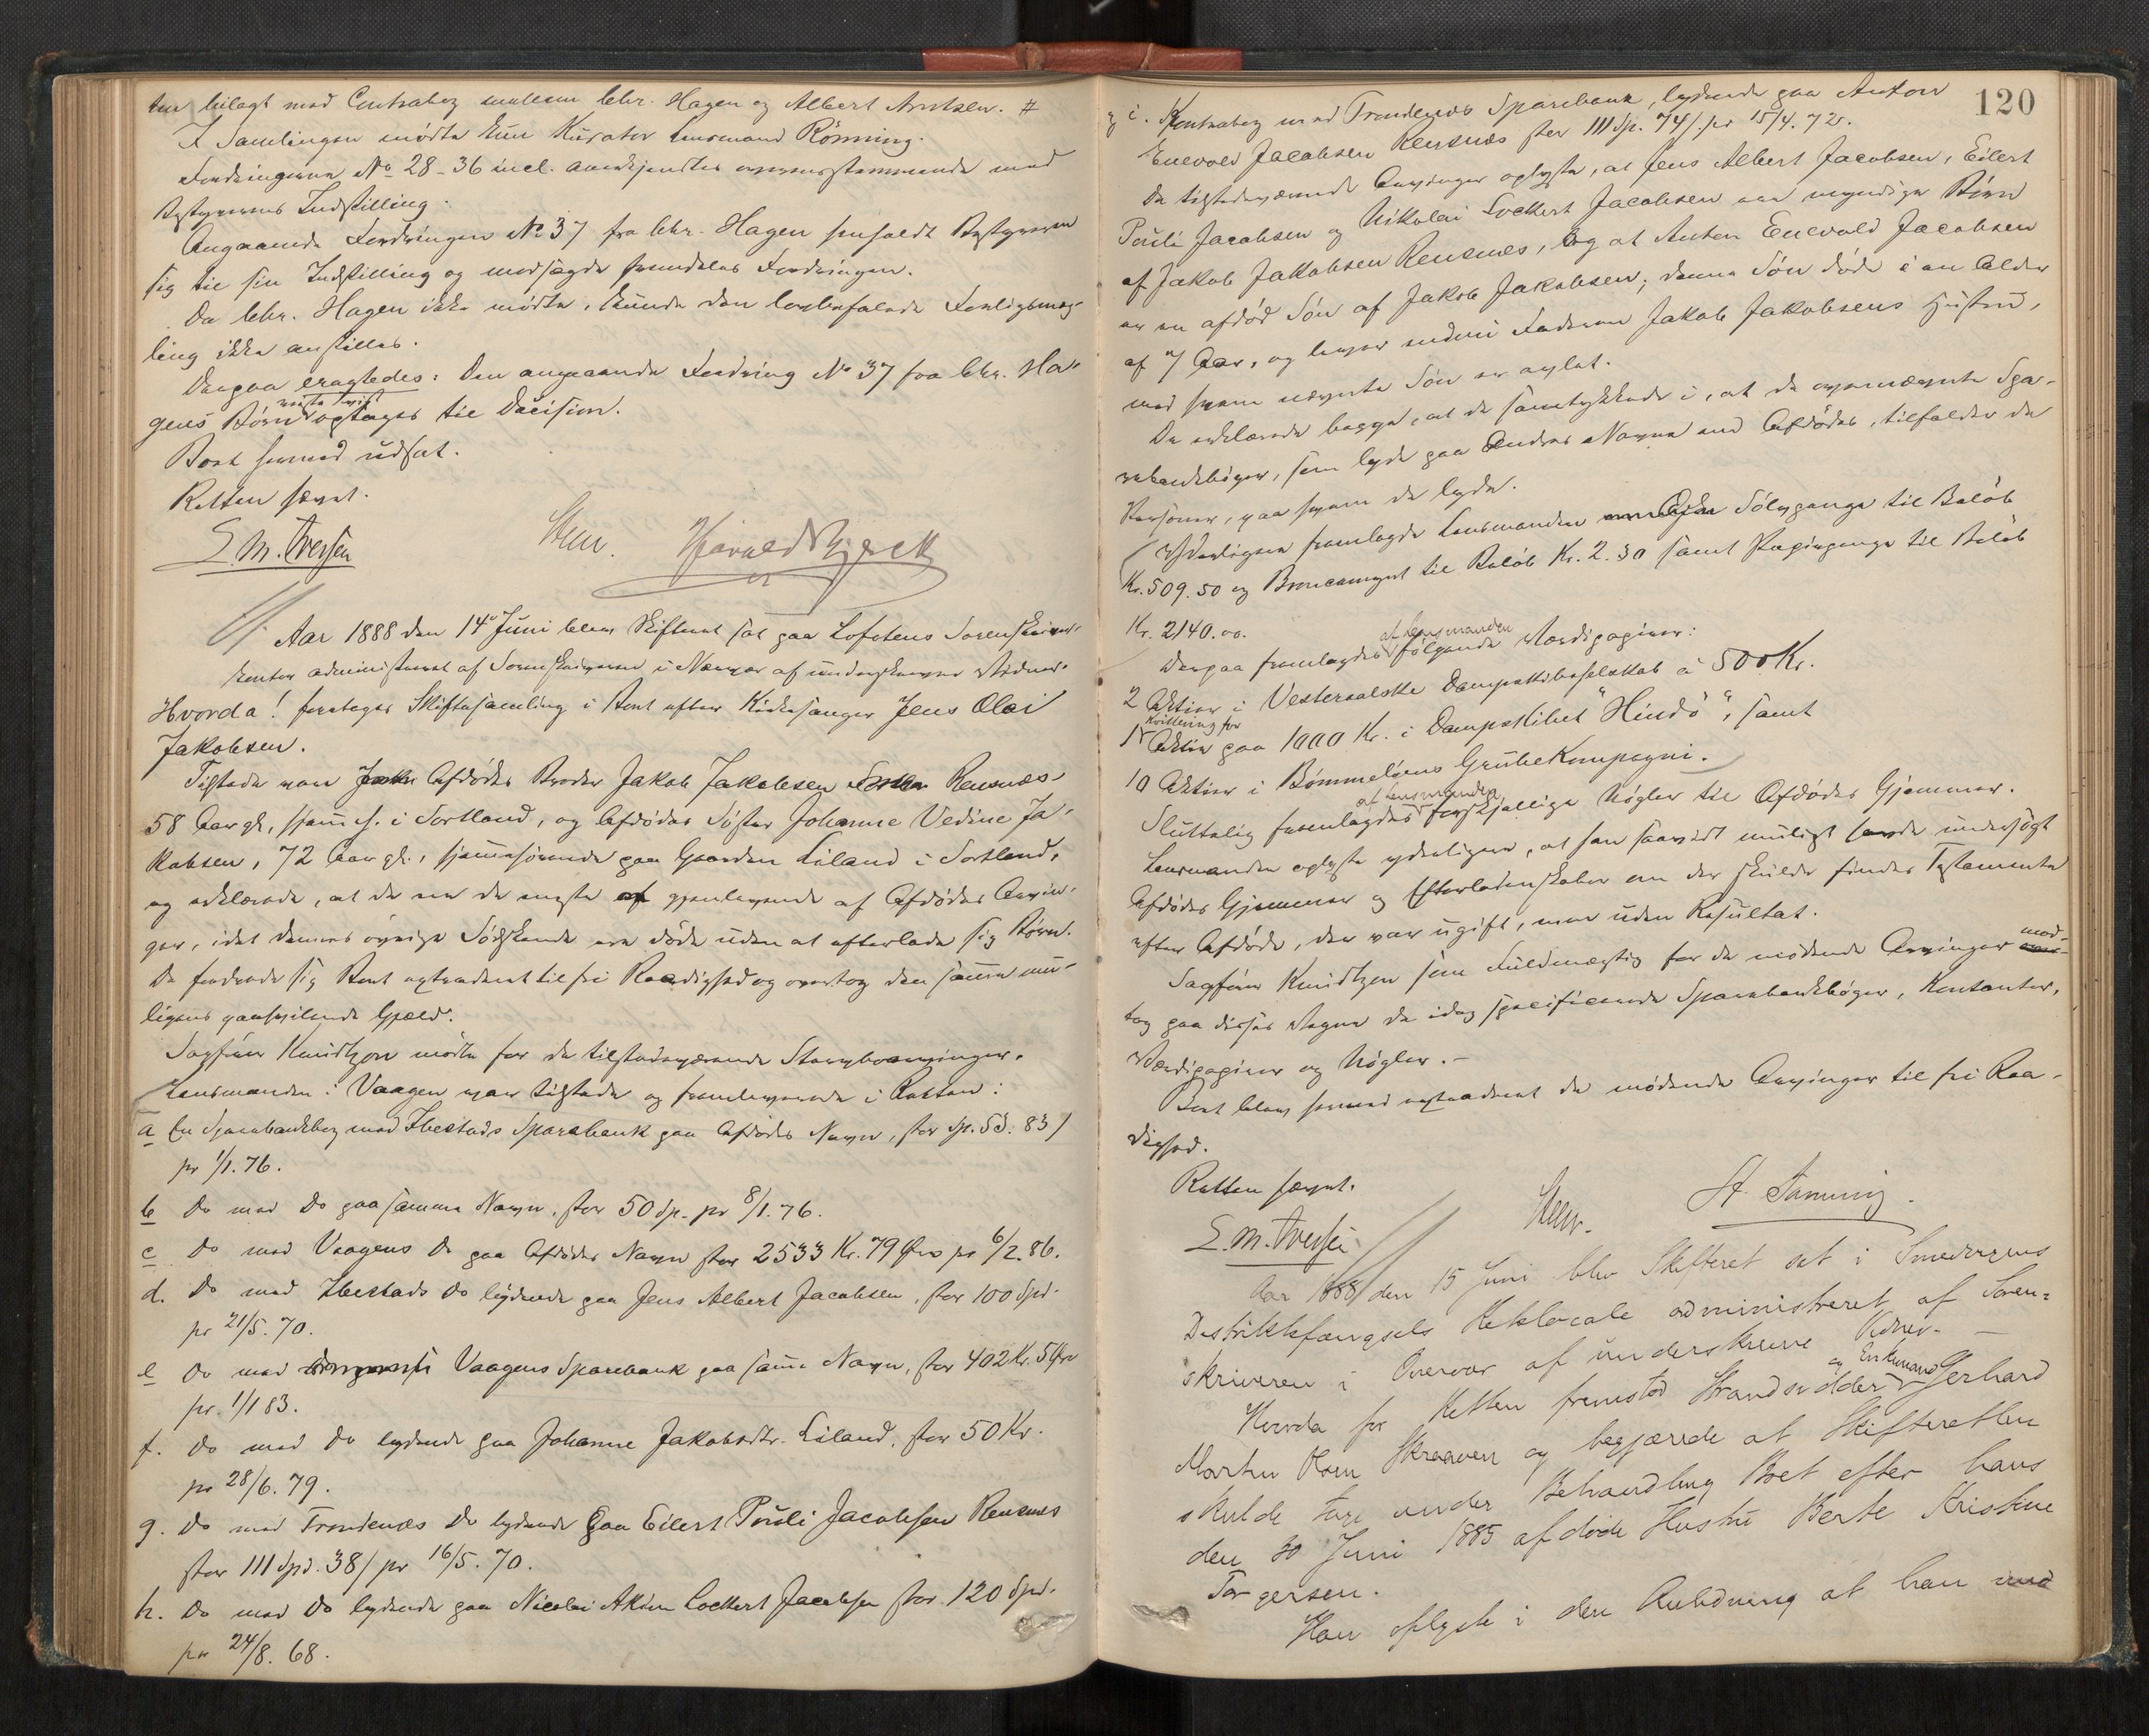 ten bilagt med Contrabog mellem lehr. Hagen og Albert Arntsen. #
I Samlingen mødte kun Kurator Lensmand Rønning.
Fordringerne No 28-36 incl. anerkjendtes overensstemmende med
Bestyrerens Indstilling.
Angaaende Fordringen No 37 fra lehr. Hagen henholdt Bestyreren
sig til sin Indstilling og modsagde fremdeles Fordringen.
Da lehr. Hagen ikke mødte, kunde den lovbefalede Forligsmæg-
ling ikke anstilles.
Derpaa eragtedes: Den angaaende Fordring No 37 fra lehr. Ha-
gens Børn reiste Tvist optages til Decision.
Boet hermed udsat.
Retten hævet.
E. M. Iversen Steen. Harald Bjerck
Aar 1888 den 14de Juni blev Skifteret sat paa Lofotens Sorenskriver-
kontor administreret af Sorenskriveren i Nærvær af underskrevne Vidner.
Hvorda! foretoges Skiftesamling i Boet efter Kirkesanger Jens Olai
Jakobsen.
Tilstede var Afdødes Broder Jakob Jakobsen Rensnæs
58 Aar gl., hjemh. i Sortland, og Afdødes Søster Johanne Vedine Ja-
kobsen, 72 Aar gl., hjemmehørende paa Gaarden Liland i Sortland,
og erklærede, at de var de eneste gjenlevende af Afdødes Arvin-
ger, idet dennes øvrige Sødskende ere døde uden at efterlade sig Børn.
De fordrede sig Boet extraderet til fri Raadighed og overtog den samme mu-
ligens paahvilende Gjæld.
Sagfører Knudtzon mødte for de tilstedeværende Stervboarvinger.
Lensmanden i Vaagen var tilstede og fremleverede i Retten:
a En Sparebankbog med Ibestads Sparebank paa Afdødes Navn, stor Sp. 53. 83/
pr 1/1. 76.
b Do med Do paa samme Navn, stor 50 Sp. pr 8/1. 76.
c Do med Vaagens Do paa Afdødes Navn stor 2533 Kr. 79 Øre pr 6/2. 86.
d. Do med Ibestads Do lydende paa Jens Albert Jacobsen, stor 100 Spd.
pr 21/5. 70.
e Do med Vaagens Sparebank paa samme Navn, stor 402 Kr. 5 Øre
pr. 1/1 83.
f. Do med Do lydende paa Johanne Jakobsdtr. Liland, stor 50 Kr.
pr 28/6. 79.
g. Do med Trondenæs Do lydende paa Eilert Pouli Jacobsen Rensnæs
stor 111 Spd. 38/ pr 16/5. 70.
h. Do med Do lydende paa Nicolai Lockert Jacobsen stor 120 Spd.
pr 24/8. 68.
120
i. Kontrabog med Trondenæs Sparebank, lydende paa Anton
Enevold Jacobsen Rensnæs stor 111 Sp. 74/ pr 15/4. 72.
De tilstedeværende Arvinger oplyste, at Jens Albert Jacobsen, Eilert
Pouli Jacobsen og Nikolai Lockert Jacobsen var myndige Børn
af Jakob Jakobsen Rensnæs, og at Anton Enevold Jacobsen
er en afdød Søn af Jakob Jakobsen; denne Søn døde i en Alder
af 7 Aar, og lever endnu Faderen Jakob Jakobsens Hustru,
med hvem nævnte Søn er avlet.
De erklærede begge, at de samtykkede i, at de ovennævnte Spa-
rebankbøger, som lyde paa Andres Navne end Afdødes, tilfalder de
Personer, paa hvem de lyde.
Yderligere fremlagde Lensmanden Sølvpenge til Beløb
Kr. 509.50 og Broncemynt til Beløb Kr. 2.30 samt Papirpenge til Beløb
Kr. 2140.00.
Derpaa fremlagdes af Lensmanden følgende Værdipapirer:
2 Aktier i Vesteraalske Dampskibsselskab à 500 Kr.
1 Kvittering for Aktie paa 1000 Kr. i Dampskibet "Hindö", samt
10 Aktier i Bømmeløens Grubekompagni.
Sluttelig foremlagdes af Lensmanden forskjellige Nøgler til Afdødes Gjemmer.
Lensmanden oplyste yderligere, at han saavidt muligt havde undersøgt
Afdødes Gjemmer og Efterladenskaber om der skulde findes Testamente
efter Afdøde, der var ugift, men uden Resultat.
Sagfører Knudtzon som Fuldmægtig for de mødende Arvinger mod-
tog paa disses Vegne de idag specificerede Sparebankbøger, Kontanter,
Værdipapirer og Nøgler.-
Boet blev hermed extraderet de mødende Arvinger til fri Raa-
dighed.
Retten hævet.
E. M. Iversen Steen. St.
Aar 1888 den 15 Juni blev Skifteret sat i Smedvigens
Distriktsfængsels Retslocale administreret af Soren-
skriveren i Overvær af underskrevne Vidner. -
Hvorda for Retten fremstod Strandsidder og Enkemand Gerhard
Martin Olsen Skraaven og begjærede at Skifteretten
skulde tage under Behandling Boet efter hans
den 30 Juni 1885 afdøde Hustru Berte Kristine
Torgersen.
Han oplyste i den Anledning at han